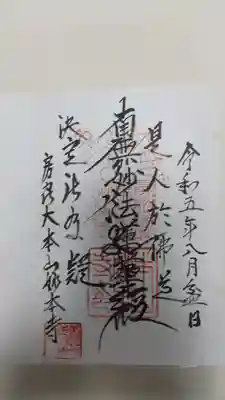 令和五年八月盆日
是人於佛道
南無妙法蓮華経
決定無有疑
房州大本山妙本寺